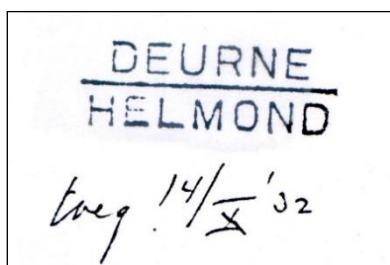 DEURNE
HELMOND
toeg. 14/X '32